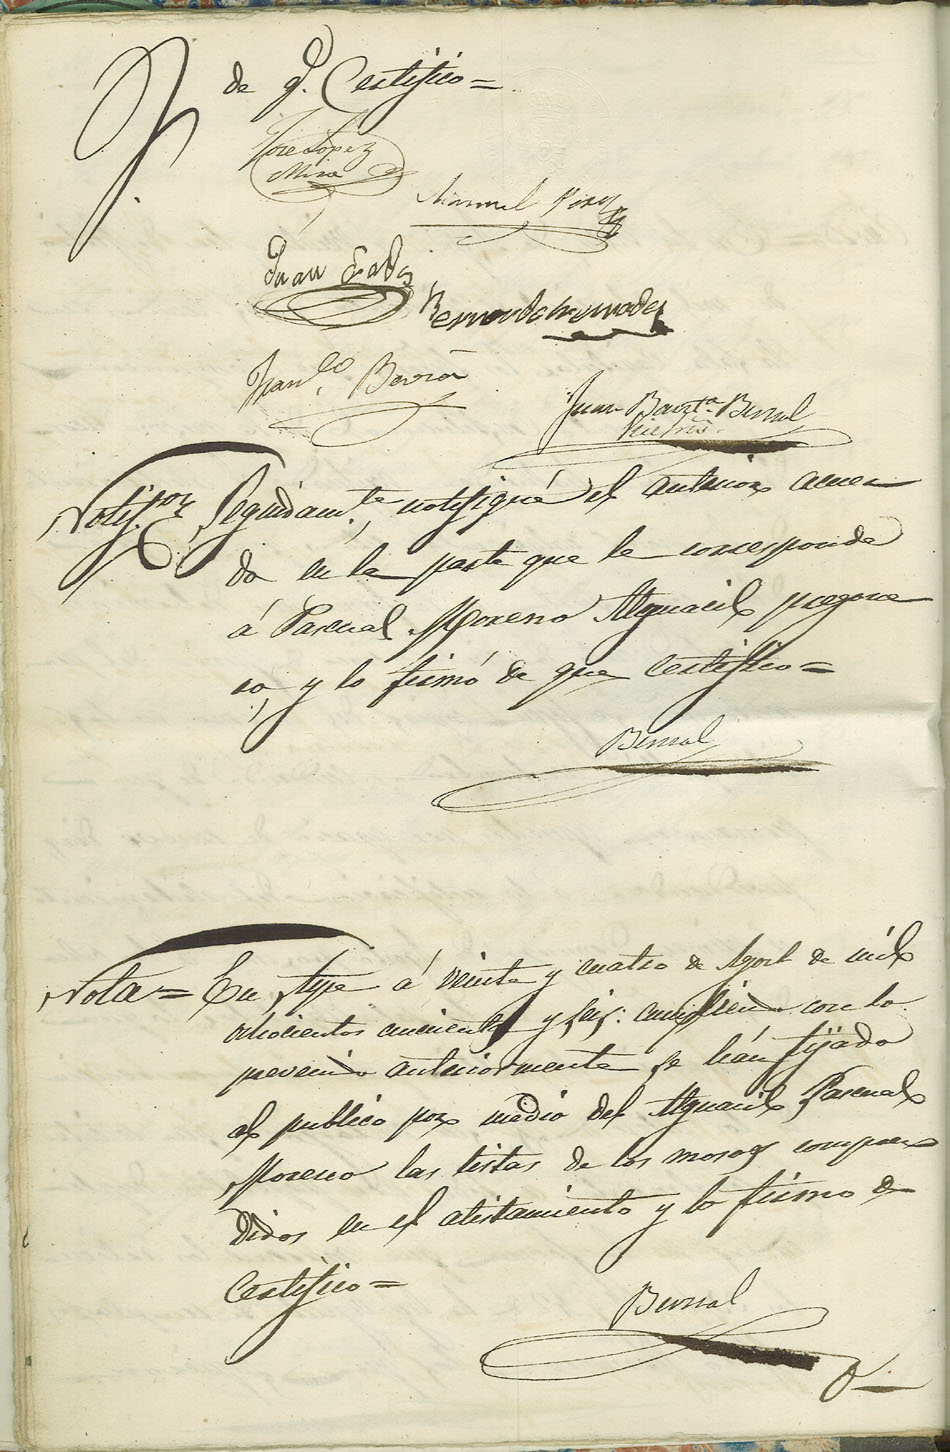 de q. Certifico=
Jose Lopez
Mira
Manuel Perez
Juan
Bernardo
Fran.co Berná
Juan Baut.a Bernal
Notif.on Seguidam.te notifiqué el anterior acuer
do en la parte que le corresponde
á Pascual Moreno Alguacil pregone
ro, y lo firmó de que Certifico=
Bernal
Nota= En Aspe á veinte y cuatro de Agosto de mil
ochocientos cincuenta y seis: cumpliendo con lo
prevenido anteriormente se hán fijado
al publico por medio del Alguacil Pascual
Moreno las listas de los mosos compren
didos en el alistamiento y lo firmo de
Certifico=
Bernal